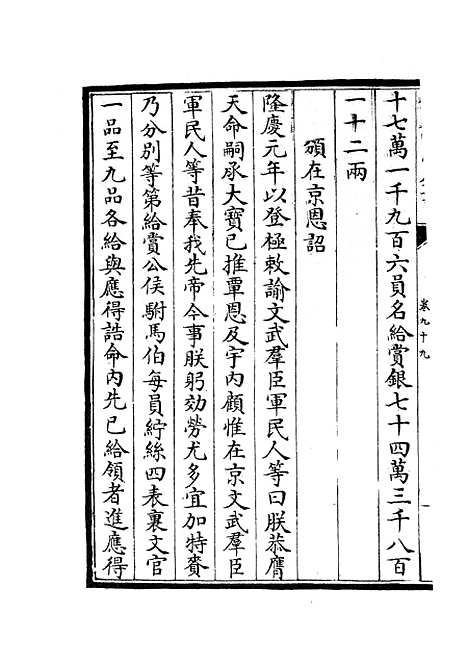 卷九十九
十七萬一千九百六員名給賞銀七十四萬三千八百
一十二兩
頒在京恩詔
隆慶元年以登極敕諭文武羣臣軍民人等曰朕恭膺
天命嗣承大寶已推覃恩及宇内顧惟在京文武羣臣
軍民人等昔奉我先帝今事朕躬効勞尤多宜加特賚
乃分别等第給賞公侯駙馬伯每員紵絲四表裏文官
一品至九品各給與應得誥命内先已給領者進應得